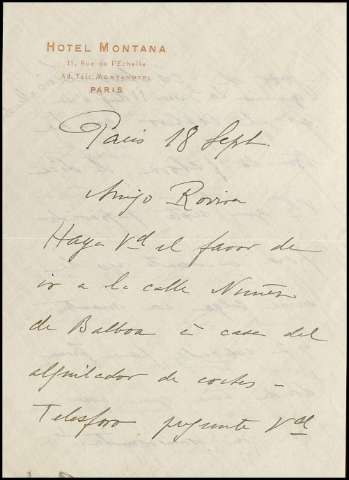 HOTEL MONTANA
11, Rue de l'Echelle
Ad. Tel.: MONTANOTEL
PARIS
Paris 18 Sept
Amigo Rovira
Haya Vd el favor de
ir a la calle Nuñez
de Balboa à casa del
alquilador de coches -
Telesforo pregunte Vd